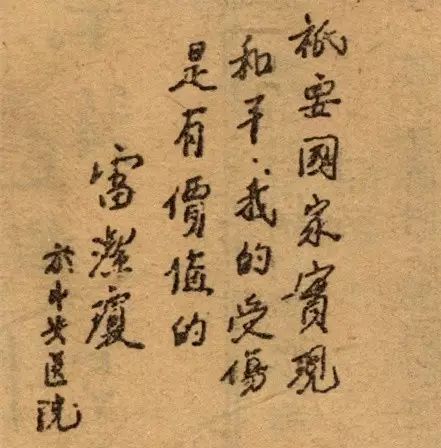 祇要國家實現
和平，我的受傷
是有價值的
雷潔瓊
於中央医院